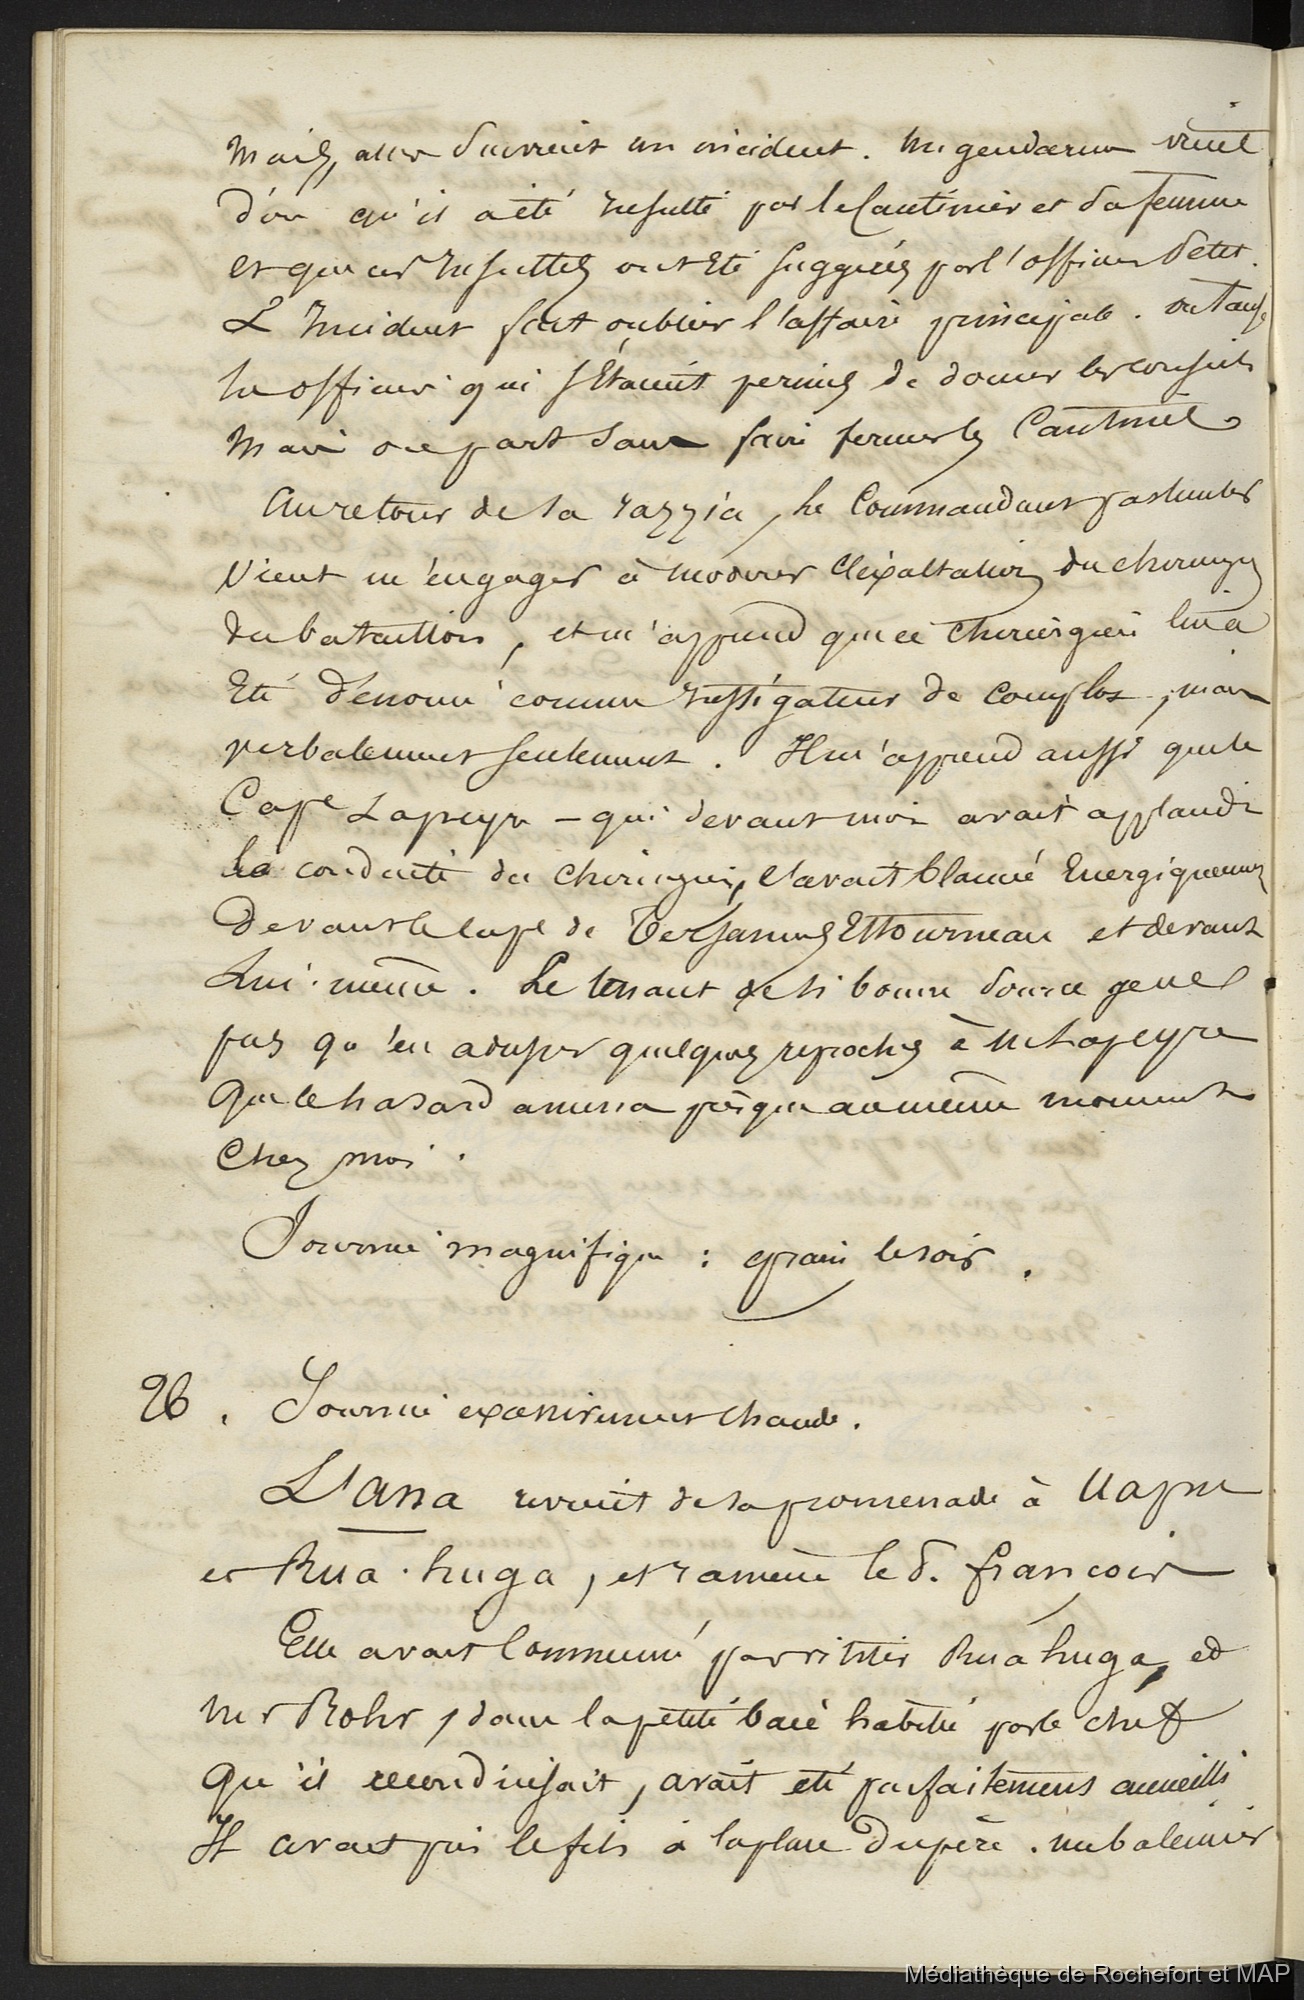 Mais, alors survient un incident. Un gendarme vient
dire qu'il a été insulté par le Cantinier et sa femme
et que ces insultes ont été suggérées par l'officier Petit.
L'incident fait oublier l'affaire principale. on tance
les officiers qui s'étaient permis de donner les conseils
Mais on part sans faire fermer les Cantines
Au retour de la razzia, le Commandant particulier
Vient m'engager à modérer l'exaltation du chirurgien
du bataillon, et m'apprend que ce chirurgien lui a
été dénoncé comme instigateur de complot, mais
verbalement seulement. Il m'apprend aussi que le
Cape Lapeyre – qui devant moi avait applaudi
la conduite du chirurgien, l'avait blamé énergiquement
Devant le cape de Etourneau et devant
Lui-même. Le tenant de si bonne source je ne
pus qu'en adresser quelques reproches à Mr Lapeyre
Que le hasard amena presque au même moment
Chez moi.
Journée magnifique : grain le soir.
26. Journée excessivement chaude.
L'Anna revient de sa promenade à Uapu
et Rua-huga, et ramène le d. françois
Elle avait commencé par visiter Rua huga, et
Mr Rohr, dans la petite baie habitée par le chef
Qu'il reconduisait, avait été parfaitement accueilli
Il avait pris le fils à la place du père. un baleinier
Médiathèque de Rochefort et MAP